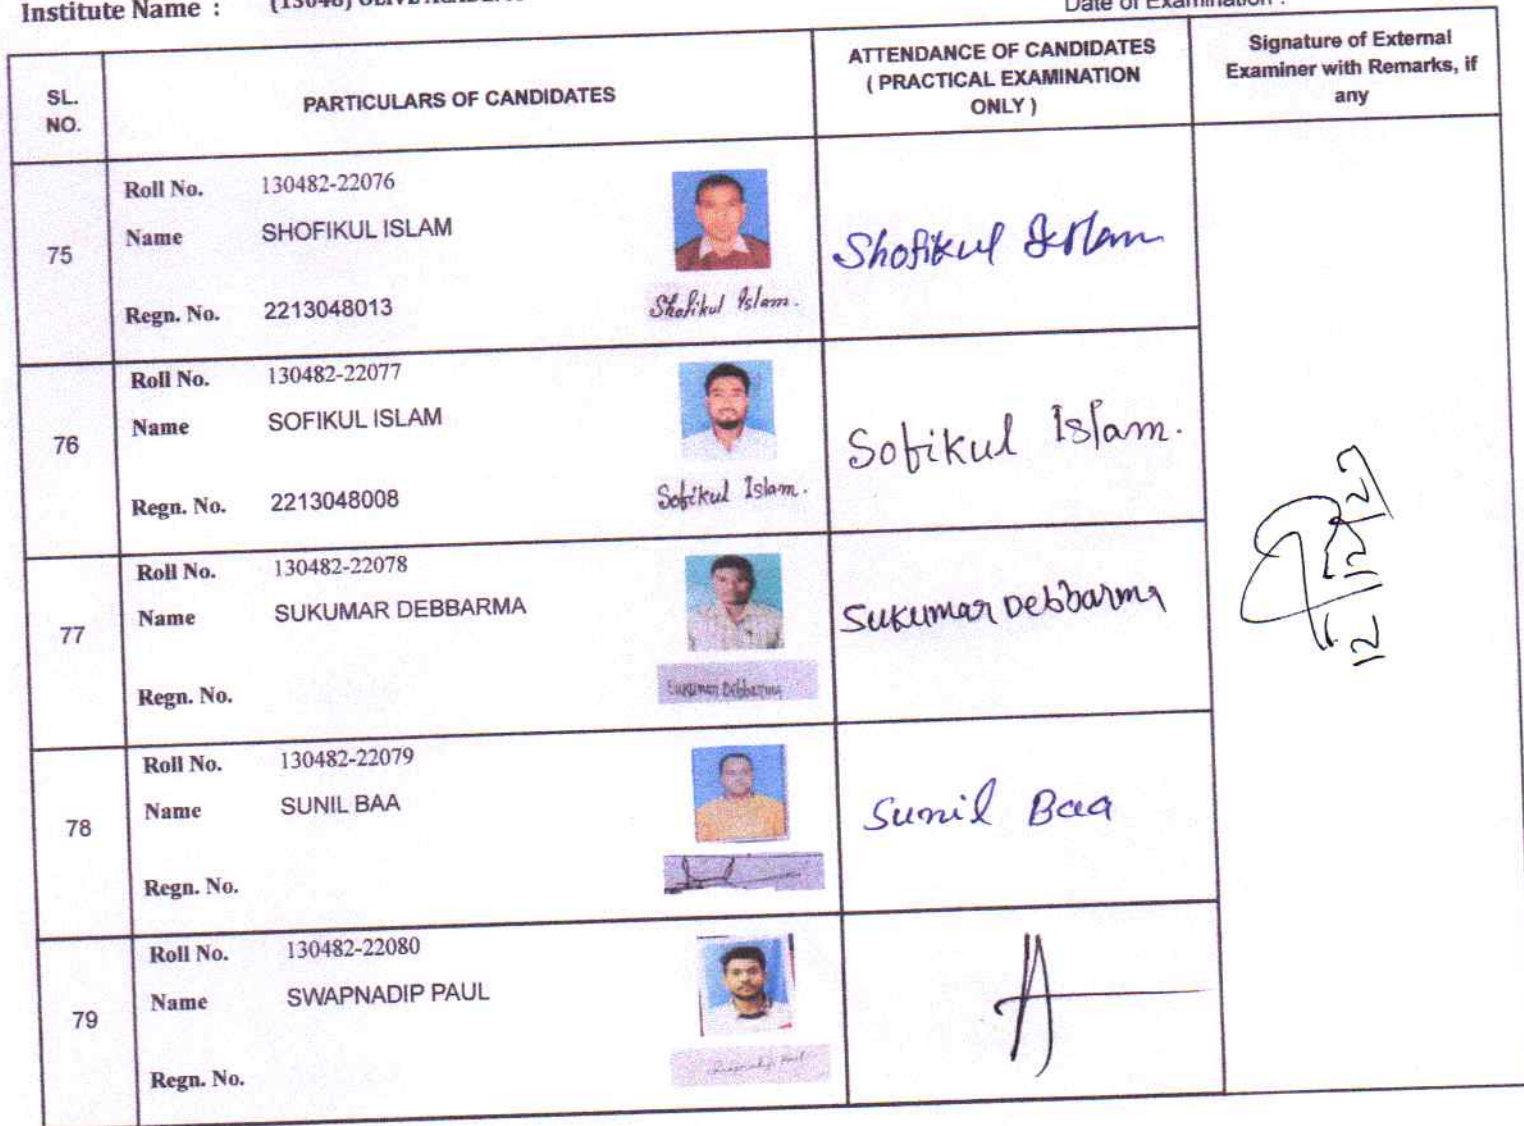 Institute Name :
Date of Examination :
SL. NO.
PARTICULARS OF CANDIDATES
ATTENDANCE OF CANDIDATES
( PRACTICAL EXAMINATION
ONLY )
Signature of External
Examiner with Remarks, if
any
75
Roll No. 130482-22076
Name SHOFIKUL ISLAM
Regn. No. 2213048013
Shofikul Islam.
Shofikul Islam
76
Roll No. 130482-22077
Name SOFIKUL ISLAM
Regn. No. 2213048008
Sofikul Islam.
Sofikul Islam.
77
Roll No. 130482-22078
Name SUKUMAR DEBBARMA
Regn. No.
Sukumar Debbarma
Sukumar Debbarma
78
Roll No. 130482-22079
Name SUNIL BAA
Regn. No.
Sunil Baa
79
Roll No. 130482-22080
Name SWAPNADIP PAUL
Regn. No.
Swapnadip Paul
A